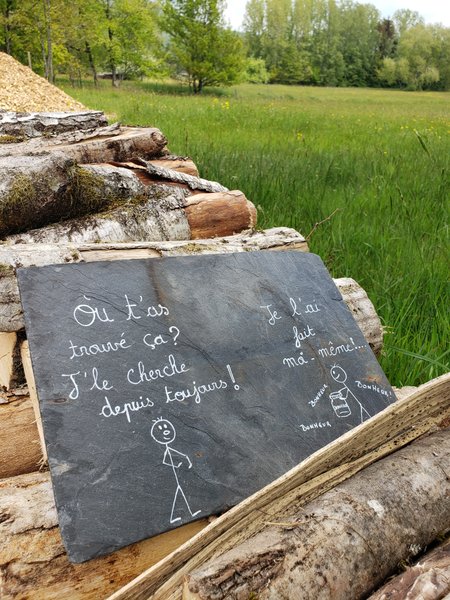 Où t'as
trouvé ça?
J'le cherche
depuis toujours!
Je l'ai
fait
moi-même!...
BONHEUR
BONHEUR!
BONHEUR